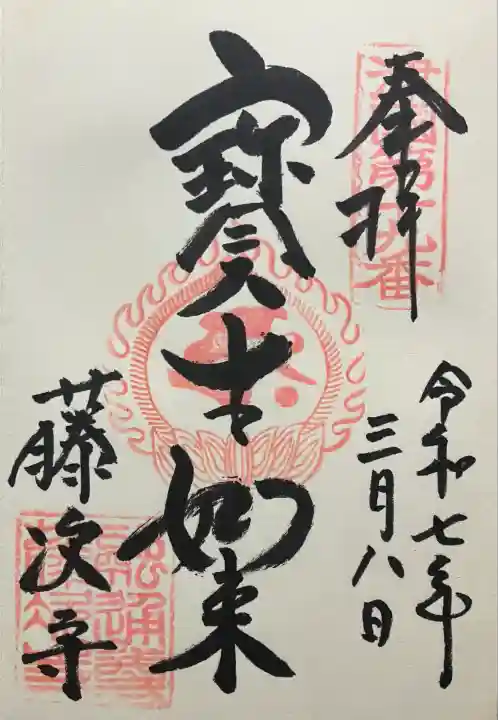 奉拝
第十九番
令和七年
三月八日
寶生如来
藤次寺